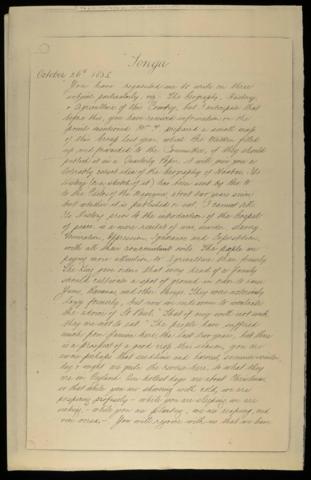 Tonga
October 26th 1835
You have requested me to write on three
subjects particularly, viz. The Geography, History,
& Agriculture of this Country, but I anticipate that
before this, you have received information on the
points mentioned. Mr T. prepared a small map
of this Group last year, which Mr Watkin filled
up and forwarded to the Committee, if they should
publish it in a Quarterly Paper, it will give you a
tolerably correct idea of the Geography of Haabai. Its
History (or a sketch of it) has been sent by Mr T.
to the Editor of the Magazine about two years since
but whether it is published or not, I cannot tell.
Its History prior to the introduction of the Gospel
of peace is a mere recital of war, murder, slavery,
Domination, Oppression, Ignorance and Superstition
with all their concomitant evils. The people are
paying more attention to Agriculture than formerly
The King gave orders that every head of a family
should cultivate a spot of ground in order to have
Yams, Bananas and other things. They were extremely
lazy formerly, but now we endeavour to inculcate
the advice of St Paul "That if any will not work
they are not to eat." The people have suffered
much from famine here, the last two years, but there
is a prospect of a good crop this season, you are
aware perhaps that seedtime and harvest, summer & winter,
day & night are quite the reverse here, to what they
are in England. Our hottest days are about Christmas
so that while you are shivering with cold, we are
perspiring profusely - while you are sleeping, we are
waking, - while you are planting, we are reaping, and
vice versa. - You will rejoice with us that we have